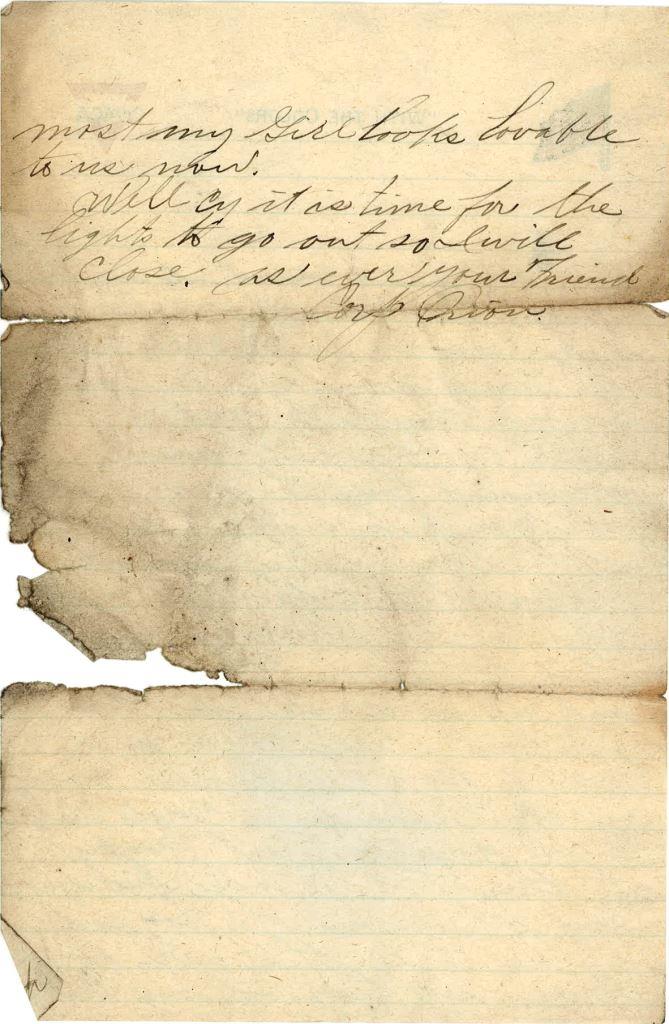 most any Girl looks lovable
to us now.
Well Cy it is time for the
lights to go out so I will
close. as ever your Friend
Corp Orion.